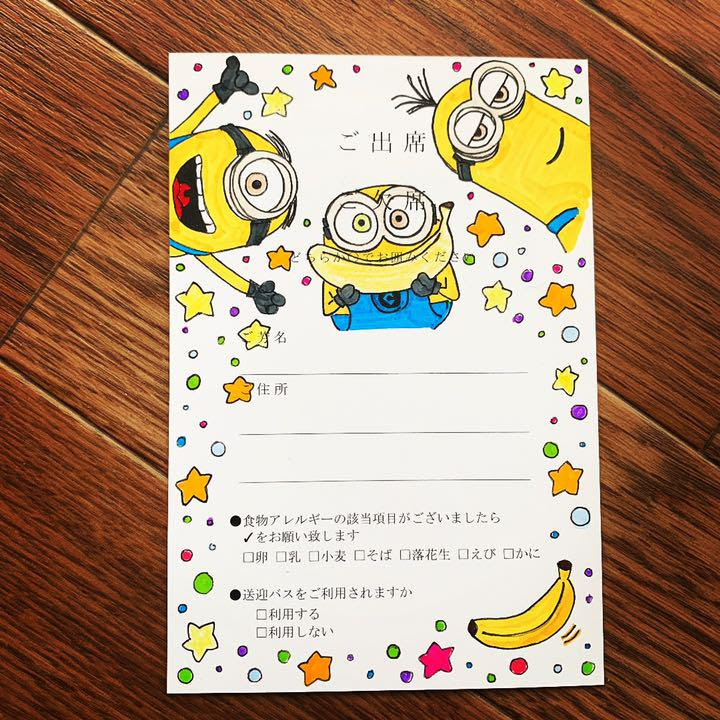 ご出席
ご欠席
どちらかいでお囲みください
ご芳名
住所
●食物アレルギーの該当項目がございましたら
✓をお願い致します
□卵 □乳 □小麦 □そば □落花生 □えび □かに
●送迎バスをご利用されますか
□利用する
□利用しない